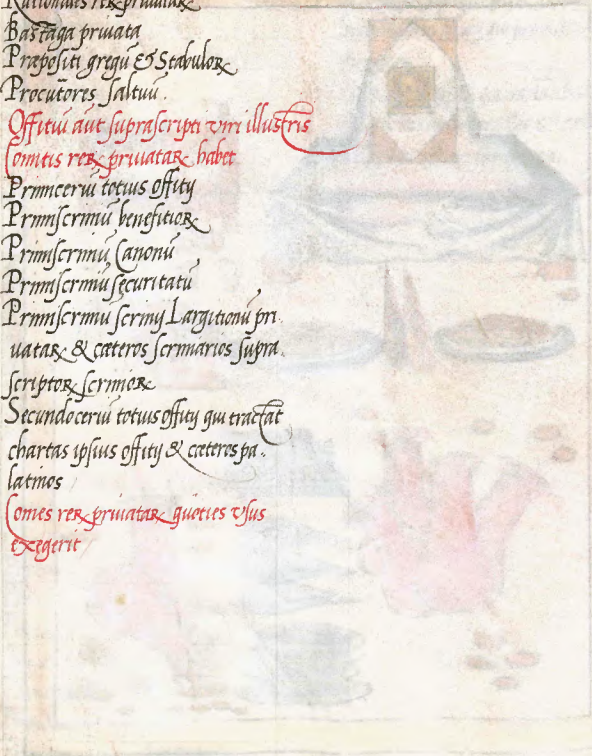 Rationales rerꝝ priuataꝝ
Bastaga priuata
Præpositi gregū & Stabuloꝝ
Procutores saltuū.
Offitiū aūt suprascripti viri illustris
Comitis reꝝ priuataꝝ habet
Primiceriū totius offitij
Primiscriniū benefitioꝝ
Primiscriniū Canonū
Primiscriniū securitatū
Primiscriniū scrinij Largitionū pri
uataꝝ & cæteros scriniarios supra.
scriptoꝝ scrinioꝝ
Secundoceriū totius offitij qui tractat
chartas ipsius offitij & cæteros pa.
latinos
Comes reꝝ priuataꝝ quoties vsus
exegerit